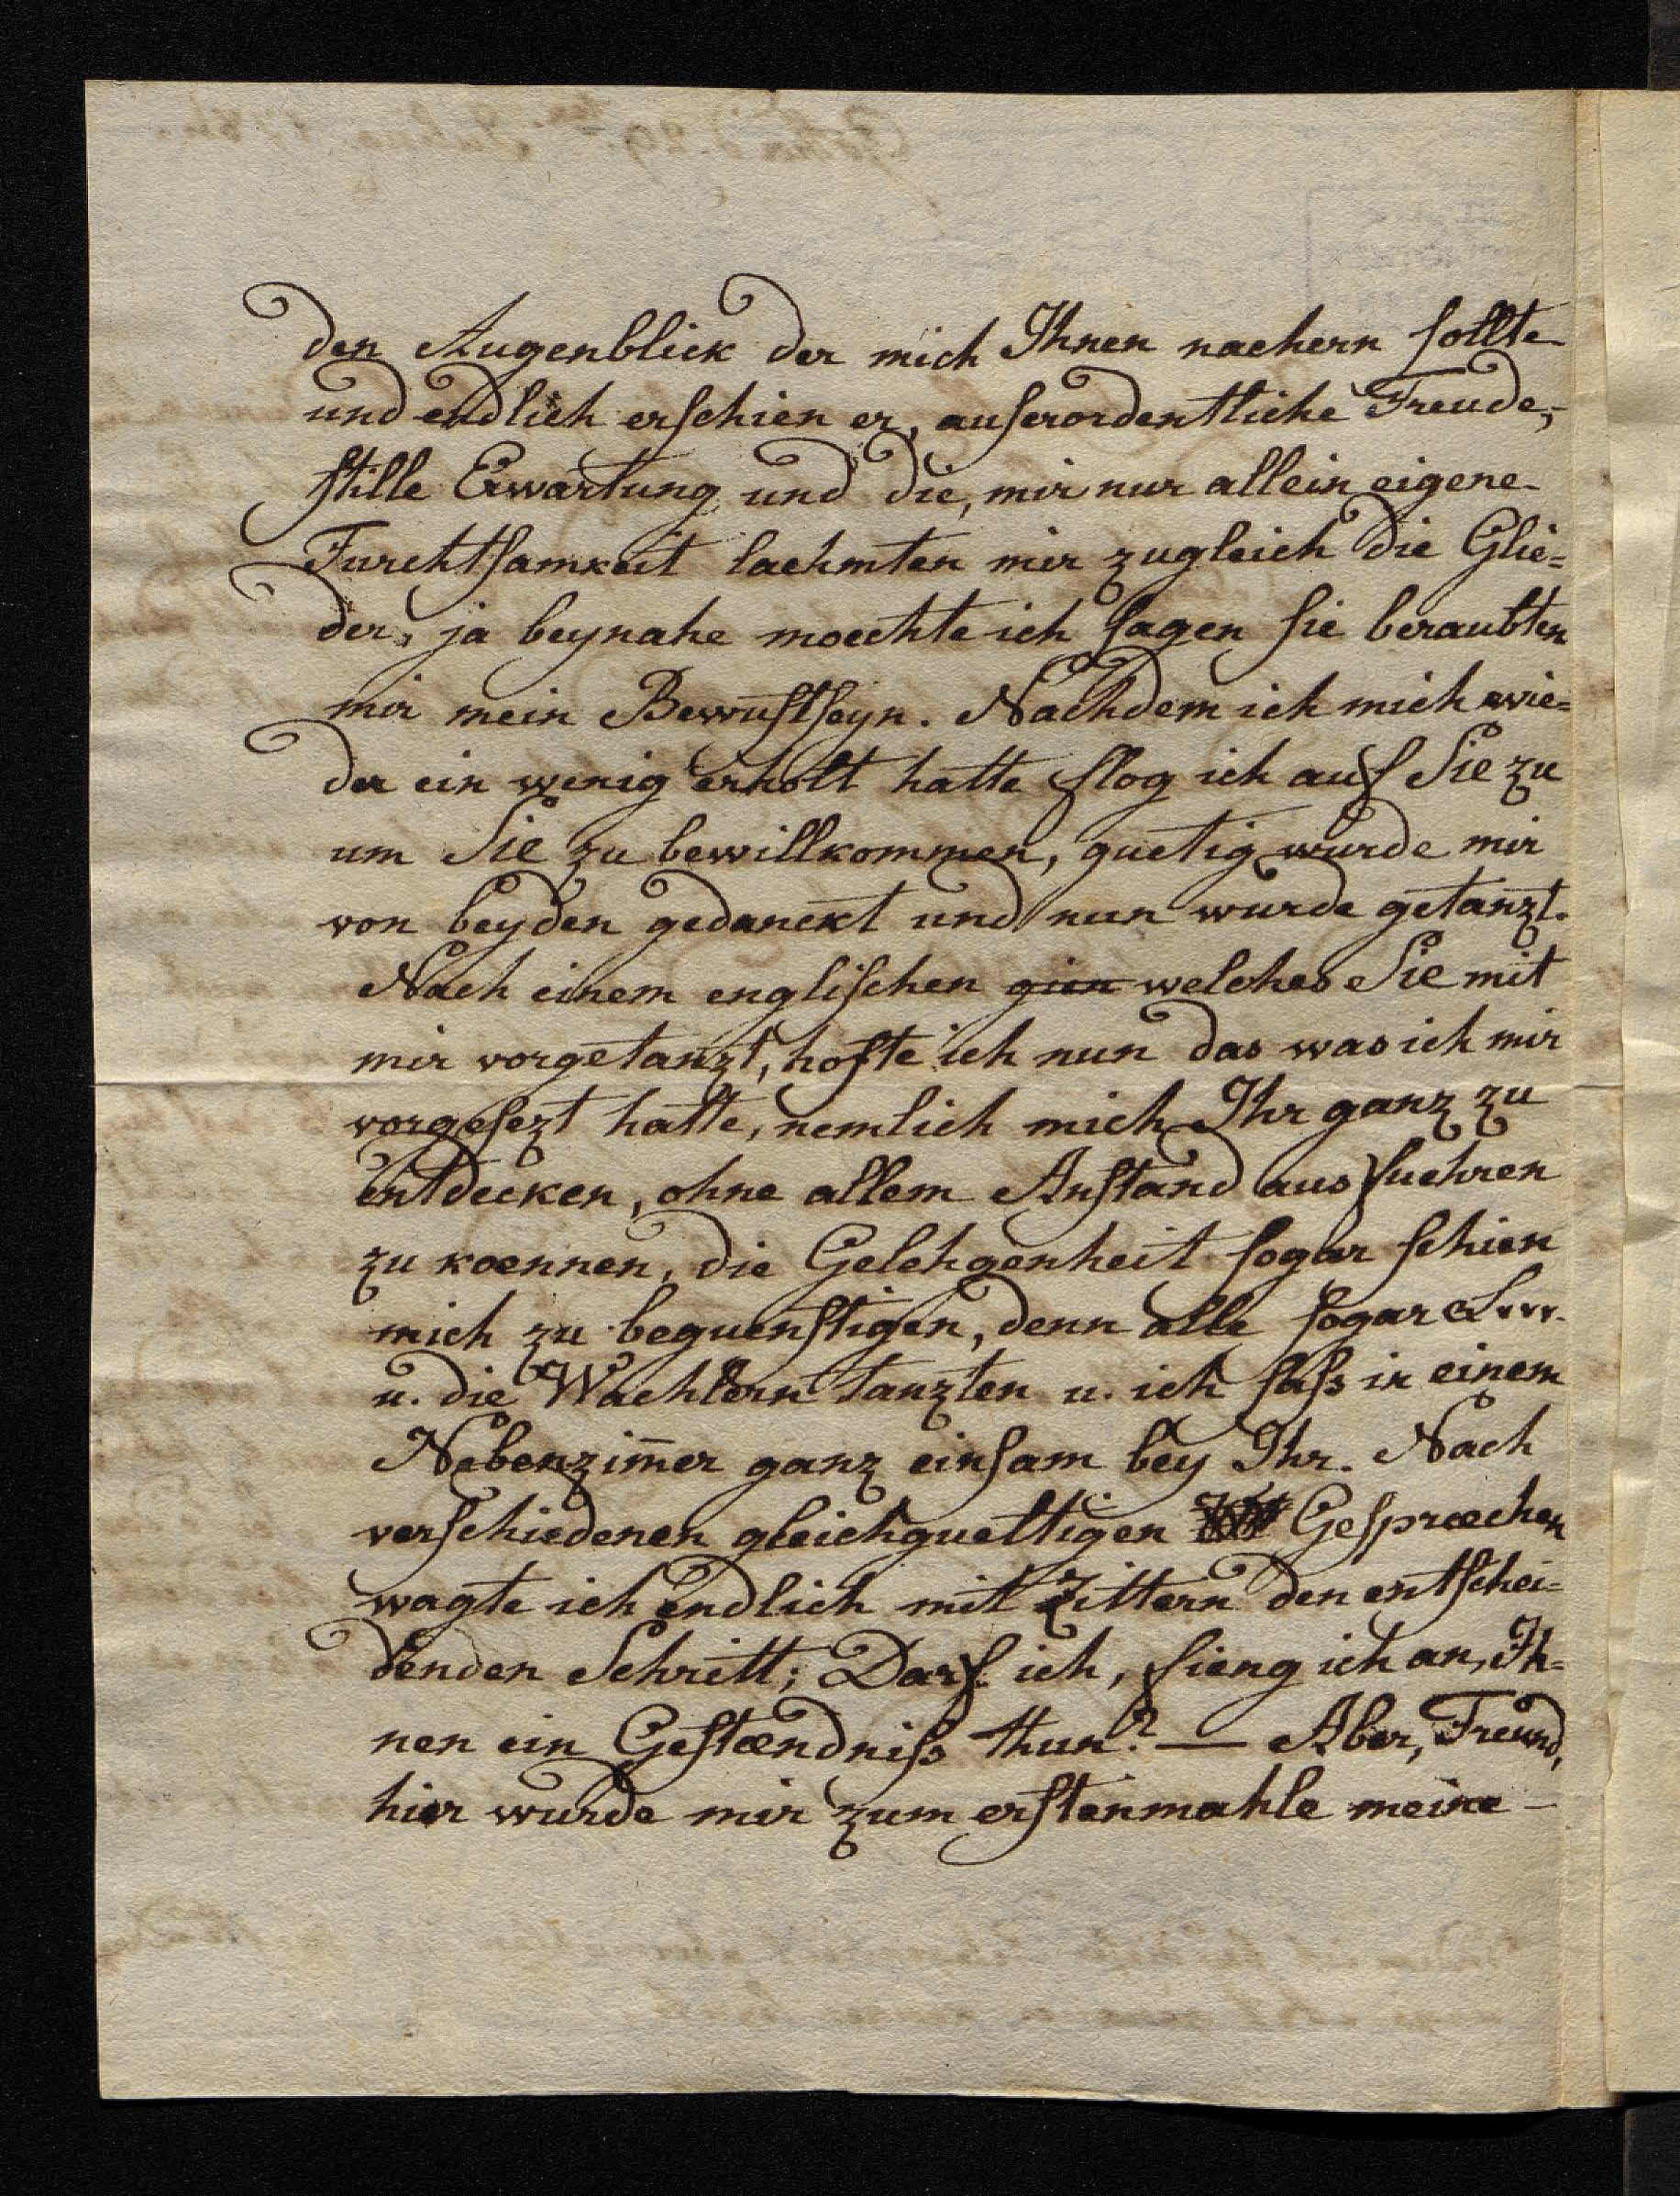 den Augenblick der mich Ihnen naehern sollte
und endlich erschien er, auserordentliche Freude,
stille Erwartung und die, mir nur allein eigene
Furchtsamkeit laehmten mir zugleich die Glie=
der, ja beynahe moechte ich sagen sie beraubten
mir mein Bewustseyn. Nachdem ich mich wie=
der ein wenig erholt hatte flog ich auf Sie zu
um Sie zu bewillkommen, guetig wurde mir
von beyden gedanckt und nun wurde getanzt.
Nach einem englischen welches Sie mit
mir vorgetanzt, hofte ich nun das was ich mir
vorgesezt hatte, nemlich mich Ihr ganz zu
entdecken, ohne allem Anstand ausfuehren
zu koennen, die Gelehgenheit sogar schien
mich zu beguenstigen, denn alle sogar
u. die Wachtern tanzten u. ich saß in einem
Nebenzim̄er ganz einsam bey Ihr. Nach
verschiedenen gleichgueltigen Gespræchen
wagte ich endlich mit Zittern den entschei=
denden Schritt; Darf ich, fieng ich an, Ih=
nen ein Gestændniß thun? — Aber, Freund,
hier wurde mir zum erstenmahle meine –